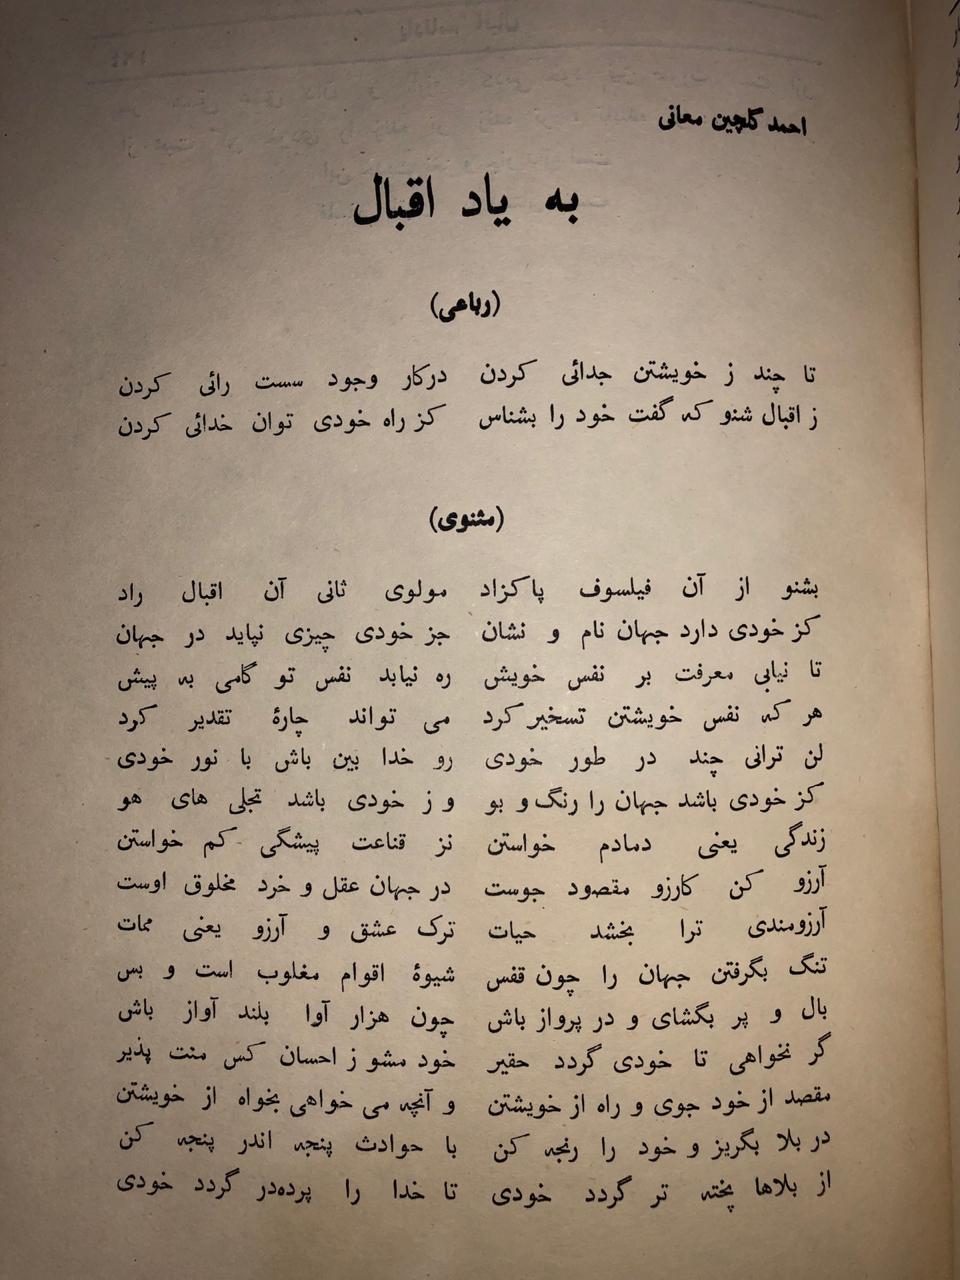 احمد گلچین معانی
به یاد اقبال
(رباعی)
تا چند ز خویشتن جدائی کردن درکار وجود سست رائی کردن
ز اقبال شنو که گفت خود را بشناس کز راه خودی توان خدائی کردن
(مثنوی)
بشنو از آن فیلسوف پاکزاد مولوی ثانی آن اقبال راد
کز خودی دارد جهان نام و نشان جز خودی چیزی نپاید در جهان
تا نیابی معرفت بر نفس خویش ره نیابد نفس تو گامی به پیش
هر که نفس خویشتن تسخیر کرد می تواند چارهٔ تقدیر کرد
لن ترانی چند در طور خودی رو خدا بین باش با نور خودی
کز خودی باشد جهان را رنگ و بو و ز خودی باشد تجلی های هو
زندگی یعنی دمادم خواستن نز قناعت پیشگی کم خواستن
آرزو کن کارزو مقصود جوست در جهان عقل و خرد مخلوق اوست
آرزومندی ترا بخشد حیات ترک عشق و آرزو یعنی ممات
تنگ بگرفتن جهان را چون قفس شیوهٔ اقوام مغلوب است و بس
بال و پر بگشای و در پرواز باش چون هزار آوا بلند آواز باش
گر نخواهی تا خودی گردد حقیر خود مشو ز احسان کس منت پذیر
مقصد از خود جوی و راه از خویشتن و آنچه می خواهی بخواه از خویشتن
در بلا بگریز و خود را رنجه کن با حوادث پنجه اندر پنجه کن
از بلاها پخته تر گردد خودی تا خدا را پرده‌در گردد خودی